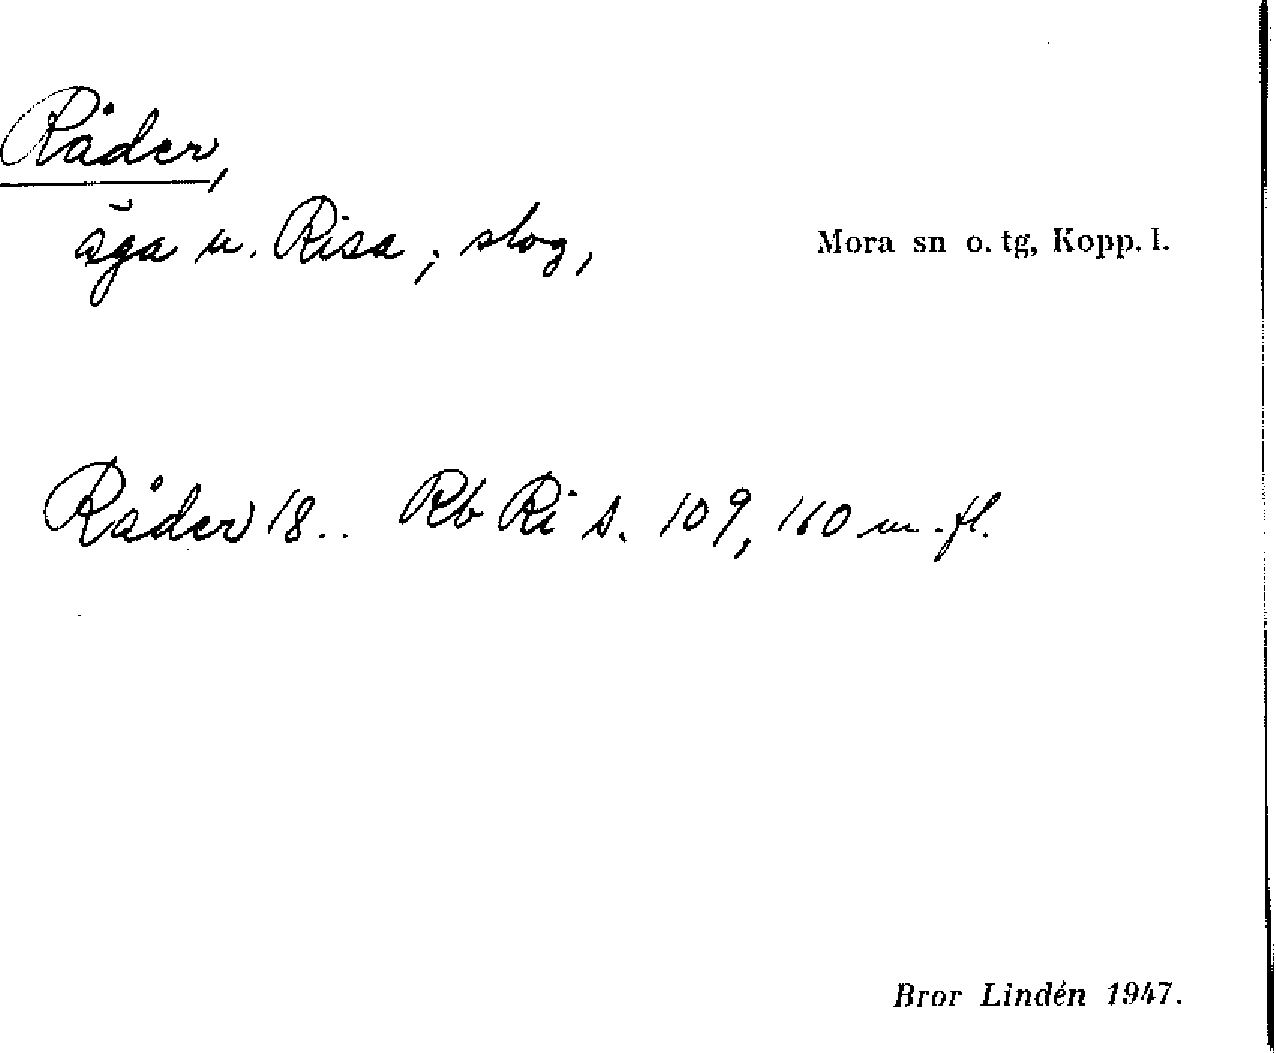 Råder,
äga u. Risa; slog,
Mora sn o. tg, Kopp. l.
Råder 18.. Rb Ri s. 109, 160 m. fl.
Bror Lindén 1947.